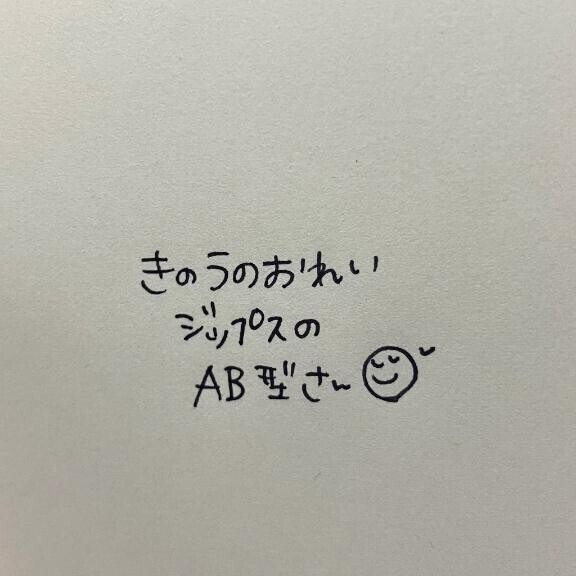 きのうのおれい
ジップスの
AB型さん